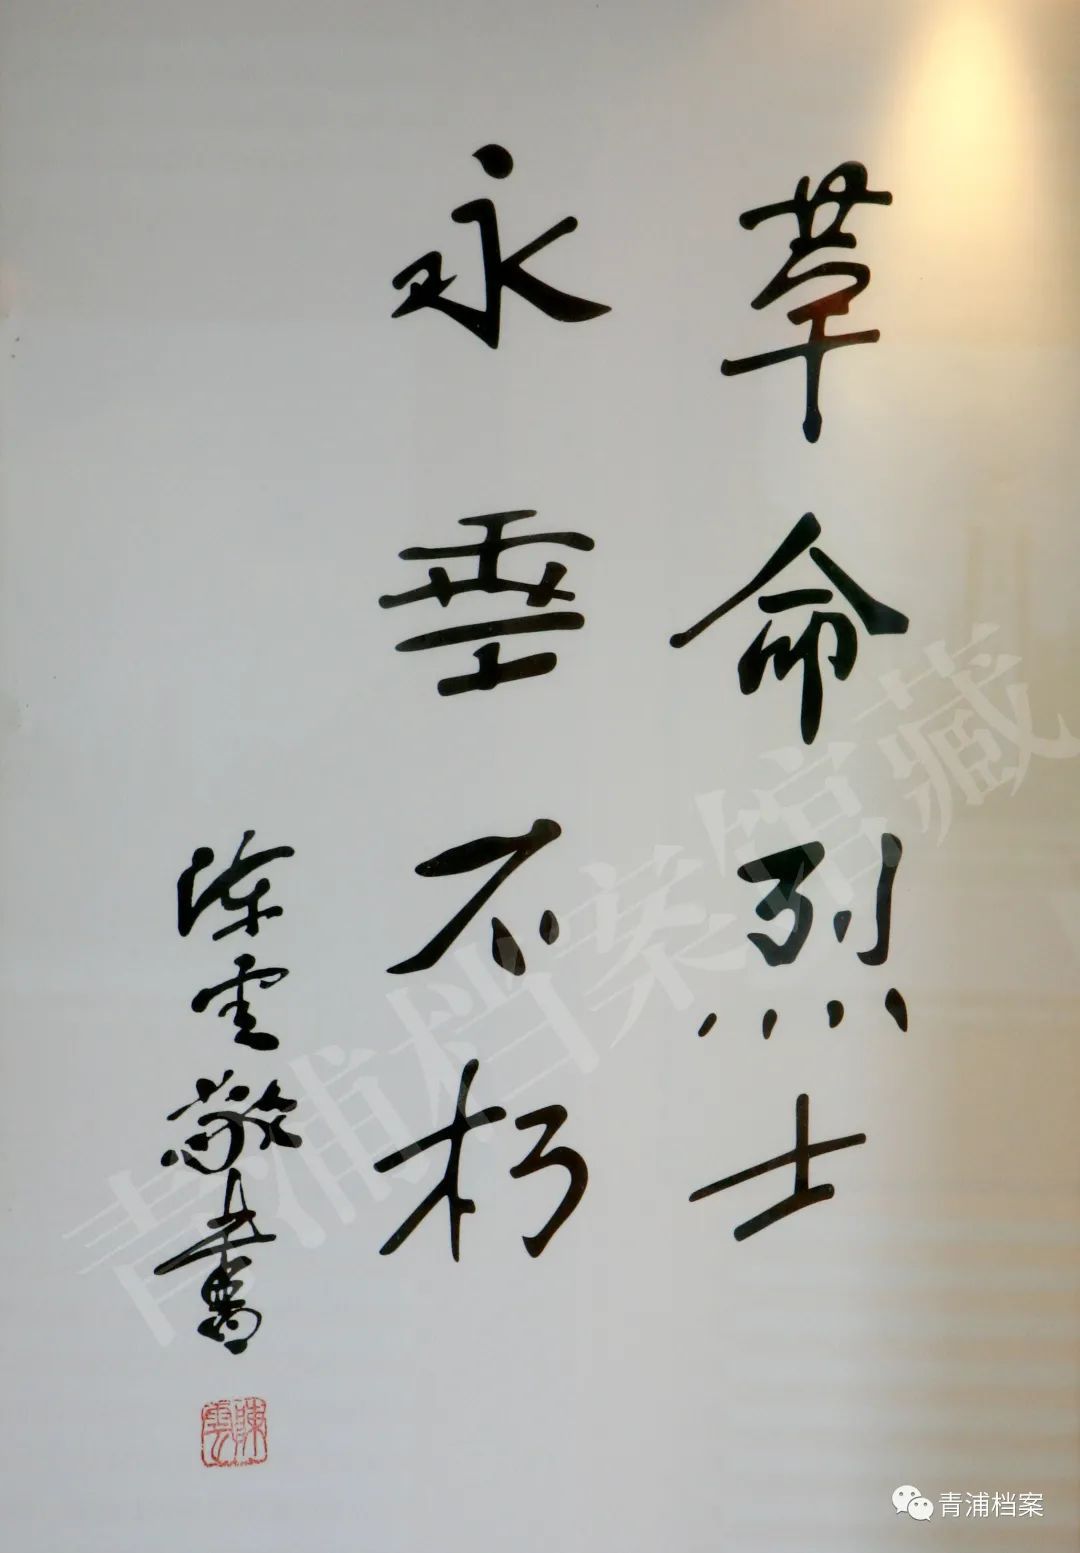 革命烈士
永垂不朽
陈云敬書
陳雲
青浦档案馆藏
青浦档案